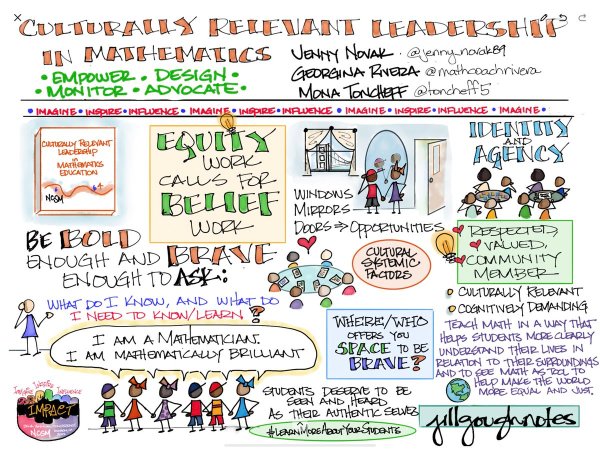 CULTURALLY RELEVANT LEADERSHIP
IN MATHEMATICS
• EMPOWER • DESIGN •
• MONITOR • ADVOCATE •
JENNY NOVAK @jenny_novak89
GEORGINA RIVERA @mathcoachrivera
MONA TONCHEFF @toncheff5
• IMAGINE • INSPIRE • INFLUENCE • IMAGINE • INSPIRE • INFLUENCE • IMAGINE • INSPIRE • INFLUENCE • IMAGINE •
CULTURALLY RELEVANT
LEADERSHIP
in
MATHEMATICS
EDUCATION
NCSM
EQUITY
WORK
CALLS FOR
BELIEF
WORK
WINDOWS
MIRRORS
DOORS ⇒ OPPORTUNITIES
IDENTITY
AND
AGENCY
BE BOLD
ENOUGH AND BRAVE
ENOUGH TO ASK:
WHAT DO I KNOW, AND WHAT DO
I NEED TO KNOW/LEARN?
CULTURAL
SYSTEMIC
FACTORS
RESPECTED,
VALUED,
COMMUNITY
MEMBER
CULTURALLY RELEVANT
COGNITIVELY DEMANDING
TEACH MATH IN A WAY THAT
HELPS STUDENTS MORE CLEARLY
UNDERSTAND THEIR LIVES IN
RELATION TO THEIR SURROUNDINGS
AND TO SEE MATH AS TOOL TO
HELP MAKE THE WORLD
MORE EQUAL AND JUST.
I AM A MATHEMATICIAN.
I AM MATHEMATICALLY BRILLIANT
WHERE/WHO
OFFERS YOU
SPACE TO BE
BRAVE?
STUDENTS DESERVE TO BE
SEEN AND HEARD
AS THEIR AUTHENTIC SELVES
#LEARNMOREABOUTYOURSTUDENTS
Imagine Inspire Influence
IMPACT
NCSM
jillgoughnotes